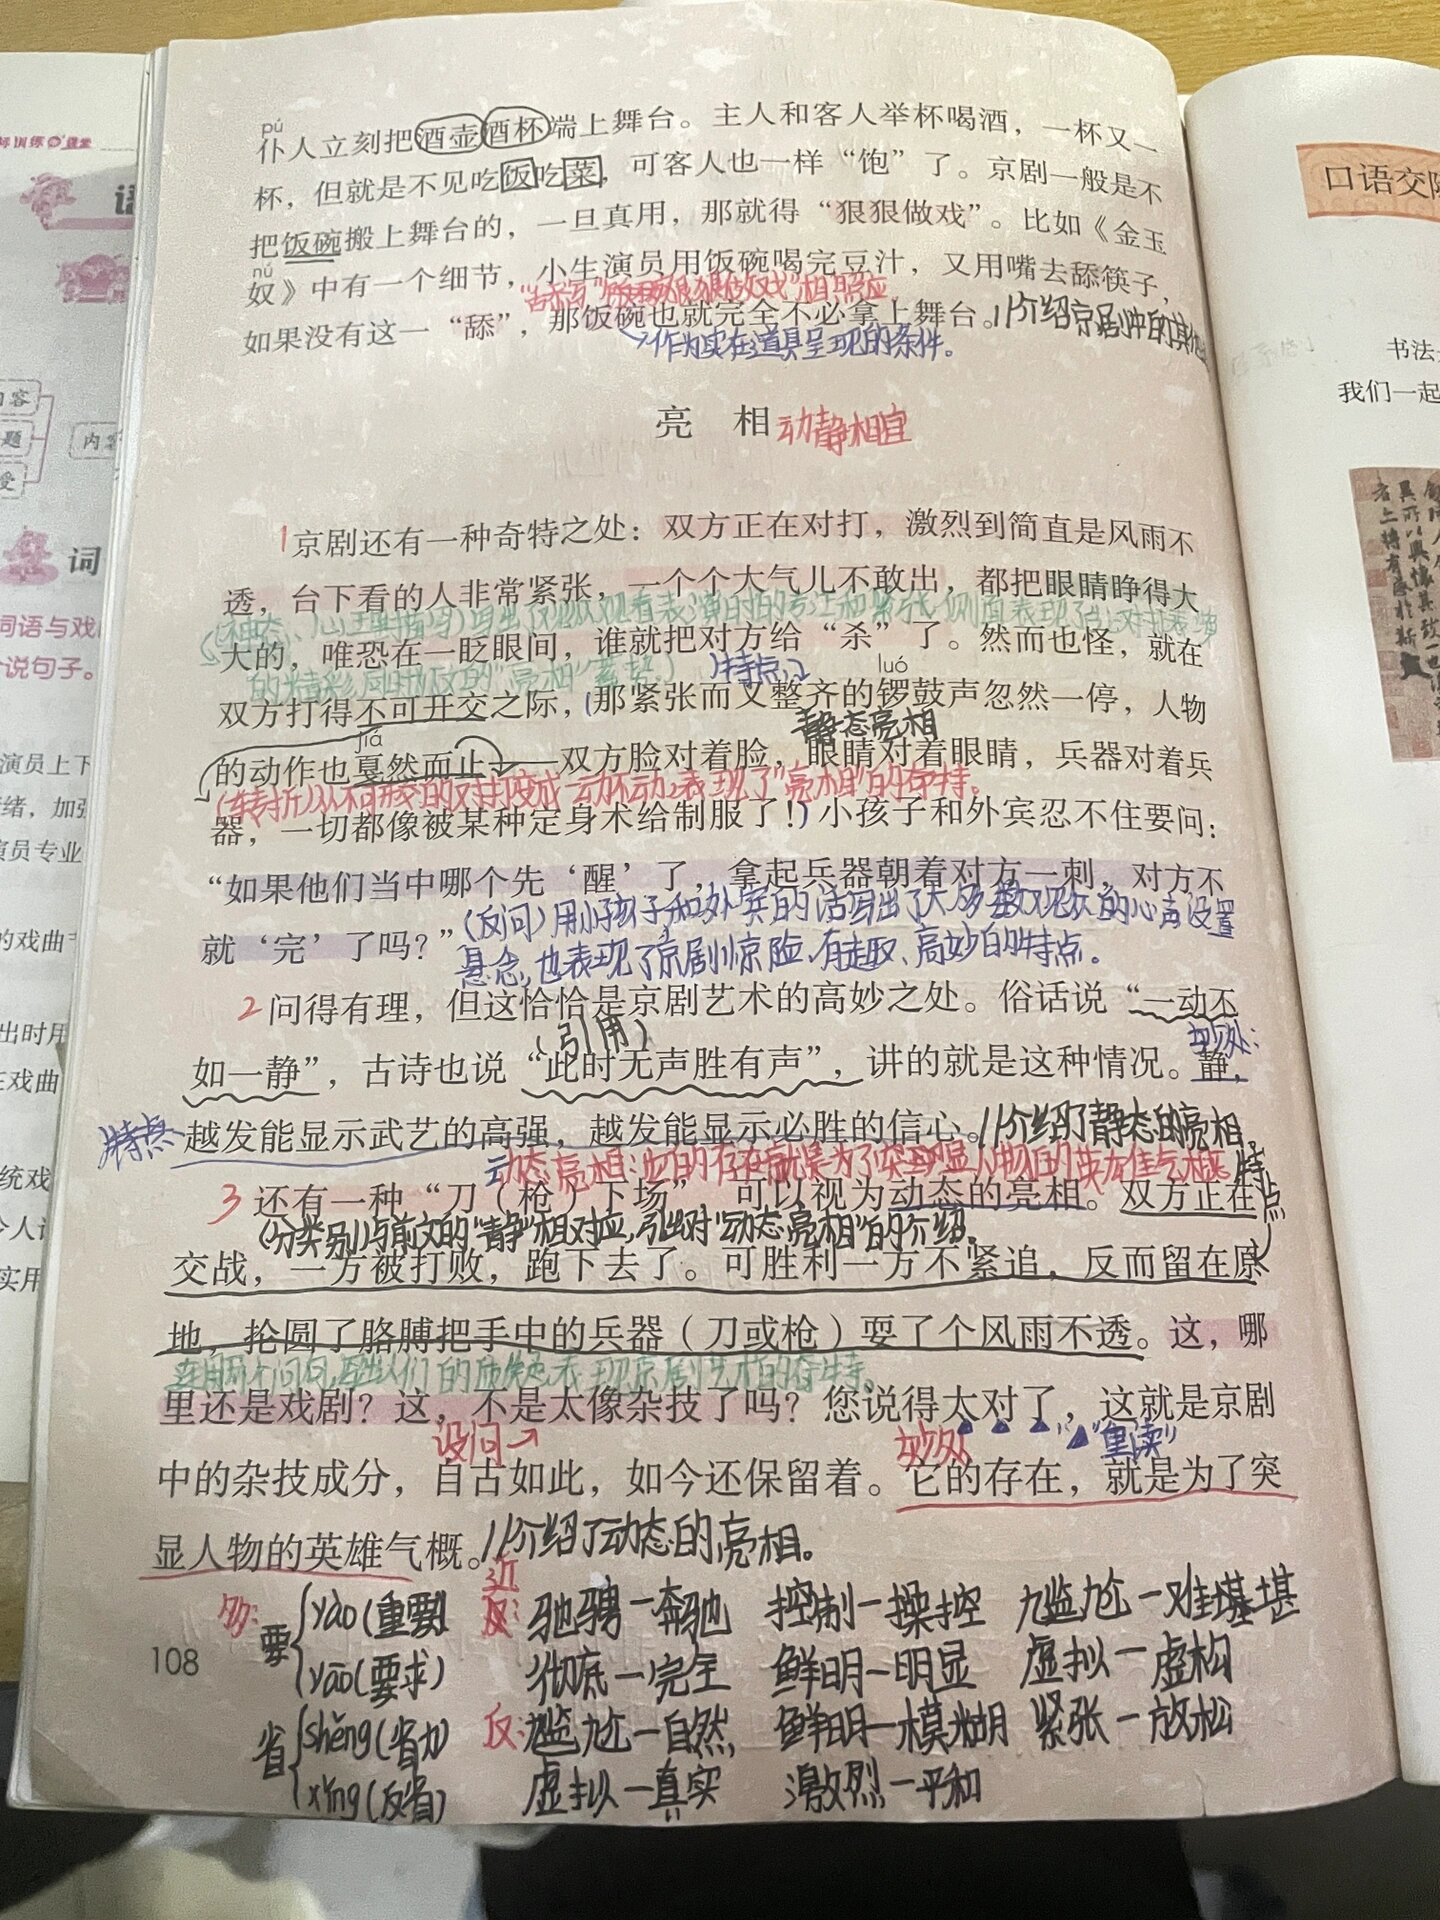 仆人立刻把酒壶酒杯端上舞台。主人和客人举杯喝酒，一杯又一
pú
杯，但就是不见吃饭吃菜，可客人也一样“饱”了。京剧一般是不
把饭碗搬上舞台的，一旦真用，那就得“狠狠做戏”。比如《金玉
nú
奴》中有一个细节，小生演员用饭碗喝完豆汁，又用嘴去舔筷子，
如果没有这一“舔”，那饭碗也就完全不必拿上舞台。
与 “狠狠做戏”相照应，
作为实在道具呈现的条件。
//介绍京剧中的
亮 相
动静相宜
1京剧还有一种奇特之处：双方正在对打，激烈到简直是风雨不
透，台下看的人非常紧张，一个个大气儿不敢出，都把眼睛睁得大
(神态、心理描写)写出了观众观看表演时的专注和紧张，侧面表现了 对打表演
大的，唯恐在一眨眼间，谁就把对方给“杀”了。然而也怪，就在
的精彩，同时为下文的“亮相”蓄势)
特点
luó
双方打得不可开交之际，那紧张而又整齐的锣鼓声忽然一停，人物
静态亮相
jiá
的动作也戛然而止——双方脸对着脸，眼睛对着眼睛，兵器对着兵
(转折)从不可开交的对打变成一动不动，表现了“亮相”的奇特。
器，一切都像被某种定身术给制服了！小孩子和外宾忍不住要问：
“如果他们当中哪个先‘醒’了，拿起兵器朝着对方一刺，对方不
就‘完’了吗？”
(反问)用小孩子和外宾的话写出了大多数观众的心声，设置
悬念，也表现了京剧惊险、有趣、高妙的特点。
2问得有理，但这恰恰是京剧艺术的高妙之处。俗话说“一动不
(引用)
妙处:
如一静”，古诗也说“此时无声胜有声”，讲的就是这种情况。静，
特点
越发能显示武艺的高强，越发能显示必胜的信心。
//介绍了静态的亮相
动态亮相:它的存在就是为了突显人物的英雄气概。
特点
3还有一种“刀（枪）下场”，可以视为动态的亮相。双方正在
(分类别)与前文的“静”相对应，引出对“动态亮相”的介绍。
交战，一方被打败，跑下去了。可胜利一方不紧追，反而留在原
地，抡圆了胳膊把手中的兵器（刀或枪）耍了个风雨不透。这，哪
连用两个问句，写出人们的质疑，表现京剧艺术的奇特。
里还是戏剧？这，不是太像杂技了吗？您说得太对了，这就是京剧
设问→
妙处
“重读”
中的杂技成分，自古如此，如今还保留着。它的存在，就是为了突
显人物的英雄气概。
//介绍了动态的亮相。
多:
要
yào(重要)
yāo(要求)
省
shěng(省力)
xǐng(反省)
近
反:
驰骋—奔驰 控制—操控 尴尬—难堪
彻底—完全 鲜明—明显 虚拟—虚构
反:尴尬—自然 鲜明—模糊 紧张—放松
虚拟—真实 激烈—平和
108
口语交际
书法
我们一起
词
词语与戏
说句子。
内容
题
受
内容
演员上下
绪，加强
演员专业
的戏曲
出时用
在戏曲
统戏
令人
实用